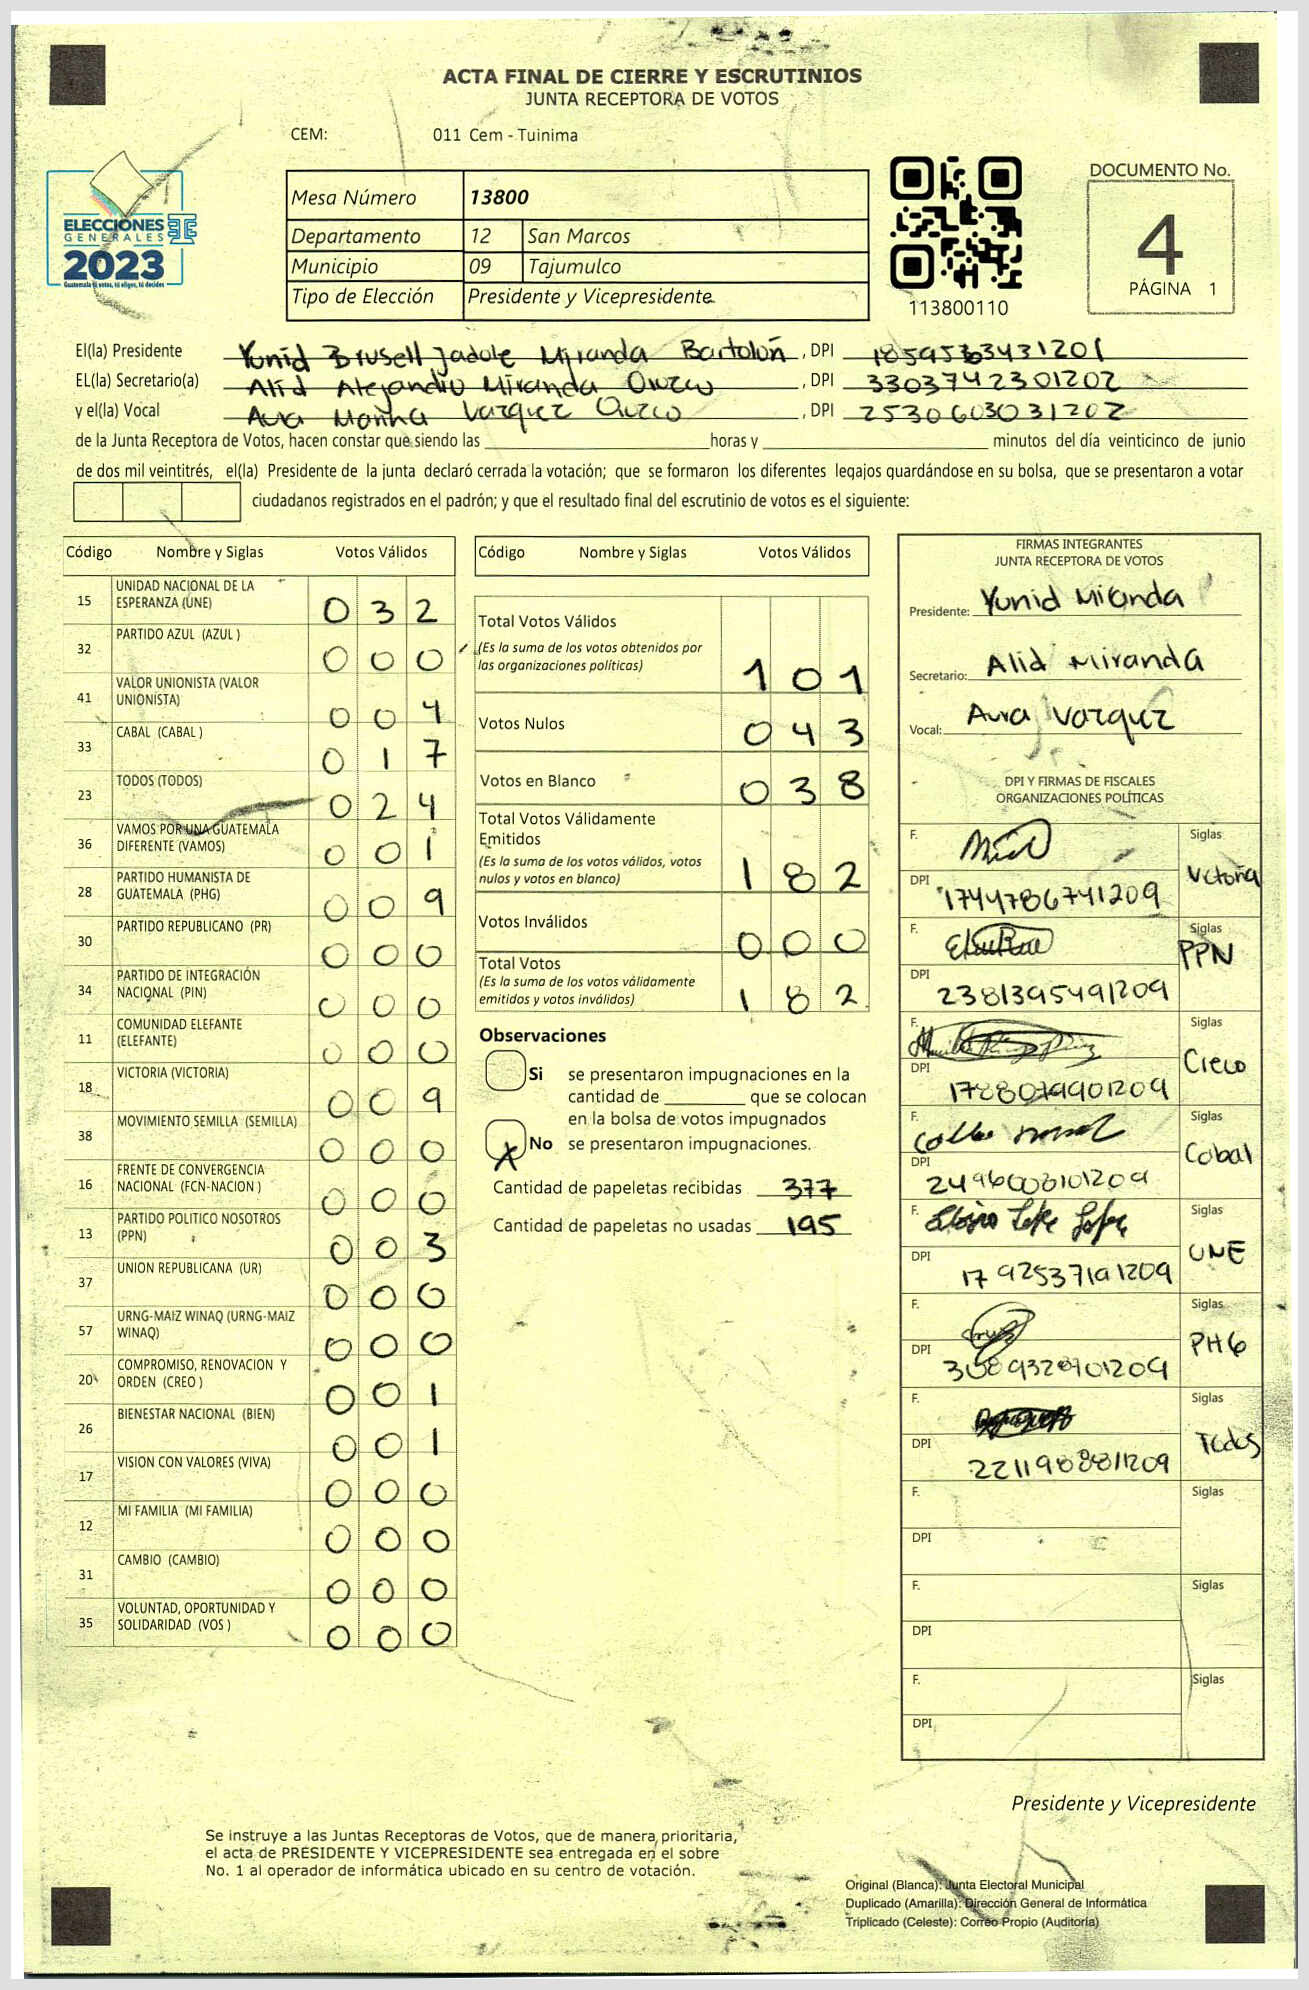 ACTA FINAL DE CIERRE Y ESCRUTINIOS
JUNTA RECEPTORA DE VOTOS
CEM: 011 Cem - Tuinima
ELECCIONES
GENERALES
2023
Guatemala tú votas, tú eliges, tú decides
Mesa Número 13800
Departamento 12 San Marcos
Municipio 09 Tajumulco
Tipo de Elección Presidente y Vicepresidente
113800110
DOCUMENTO No.
4
PÁGINA 1
El(la) Presidente Yunid Brusell Jadole Miranda Bartolón, DPI
EL(la) Secretario(a) Alid Alejandro Miranda Orozco, DPI 3303742301202
y el(la) Vocal Aura Marina Vazquez Orozco, DPI 2530603031202
de la Junta Receptora de Votos, hacen constar que siendo las horas y minutos del día veinticinco de junio
de dos mil veintitrés, el(la) Presidente de la junta declaró cerrada la votación; que se formaron los diferentes legajos guardándose en su bolsa, que se presentaron a votar
ciudadanos registrados en el padrón; y que el resultado final del escrutinio de votos es el siguiente:
Código Nombre y Siglas Votos Válidos
15 UNIDAD NACIONAL DE LA ESPERANZA (UNE) 032
32 PARTIDO AZUL (AZUL ) 000
41 VALOR UNIONISTA (VALOR UNIONISTA) 004
33 CABAL (CABAL ) 017
23 TODOS (TODOS) 024
36 VAMOS POR UNA GUATEMALA DIFERENTE (VAMOS) 001
28 PARTIDO HUMANISTA DE GUATEMALA (PHG) 009
30 PARTIDO REPUBLICANO (PR) 000
34 PARTIDO DE INTEGRACIÓN NACIONAL (PIN) 000
11 COMUNIDAD ELEFANTE (ELEFANTE) 000
18 VICTORIA (VICTORIA) 009
38 MOVIMIENTO SEMILLA (SEMILLA) 000
16 FRENTE DE CONVERGENCIA NACIONAL (FCN-NACION ) 000
13 PARTIDO POLITICO NOSOTROS (PPN) 003
37 UNION REPUBLICANA (UR) 000
57 URNG-MAIZ WINAQ (URNG-MAIZ WINAQ) 000
20 COMPROMISO, RENOVACION Y ORDEN (CREO ) 001
26 BIENESTAR NACIONAL (BIEN) 001
17 VISION CON VALORES (VIVA) 000
12 MI FAMILIA (MI FAMILIA) 000
31 CAMBIO (CAMBIO) 000
35 VOLUNTAD, OPORTUNIDAD Y SOLIDARIDAD (VOS ) 000
Código Nombre y Siglas Votos Válidos
Total Votos Válidos
(Es la suma de los votos obtenidos por
las organizaciones políticas) 101
Votos Nulos 043
Votos en Blanco 038
Total Votos Válidamente
Emitidos
(Es la suma de los votos válidos, votos
nulos y votos en blanco) 182
Votos Inválidos 000
Total Votos
(Es la suma de los votos válidamente
emitidos y votos inválidos) 182
Observaciones
Si se presentaron impugnaciones en la
cantidad de que se colocan
en la bolsa de votos impugnados
X No se presentaron impugnaciones.
Cantidad de papeletas recibidas 377
Cantidad de papeletas no usadas 195
FIRMAS INTEGRANTES
JUNTA RECEPTORA DE VOTOS
Presidente: Yunid Miranda
Secretario: Alid Miranda
Vocal: Aura Vazquez
DPI Y FIRMAS DE FISCALES
ORGANIZACIONES POLÍTICAS
F. Siglas Victoria
DPI 1744786741209
F. Siglas PPN
DPI 2381395491209
F. Siglas Creo
DPI 1788079901209
F. Siglas Cabal
DPI
F. Siglas UNE
DPI 1792537191209
F. Siglas PHG
DPI 3089328901209
F. Siglas Todos
DPI 2211988881209
F. Siglas
DPI
F. Siglas
DPI
F. Siglas
DPI
Presidente y Vicepresidente
Se instruye a las Juntas Receptoras de Votos, que de manera prioritaria,
el acta de PRESIDENTE Y VICEPRESIDENTE sea entregada en el sobre
No. 1 al operador de informática ubicado en su centro de votación.
Original (Blanca): Junta Electoral Municipal
Duplicado (Amarilla): Dirección General de Informática
Triplicado (Celeste): Correo Propio (Auditoría)